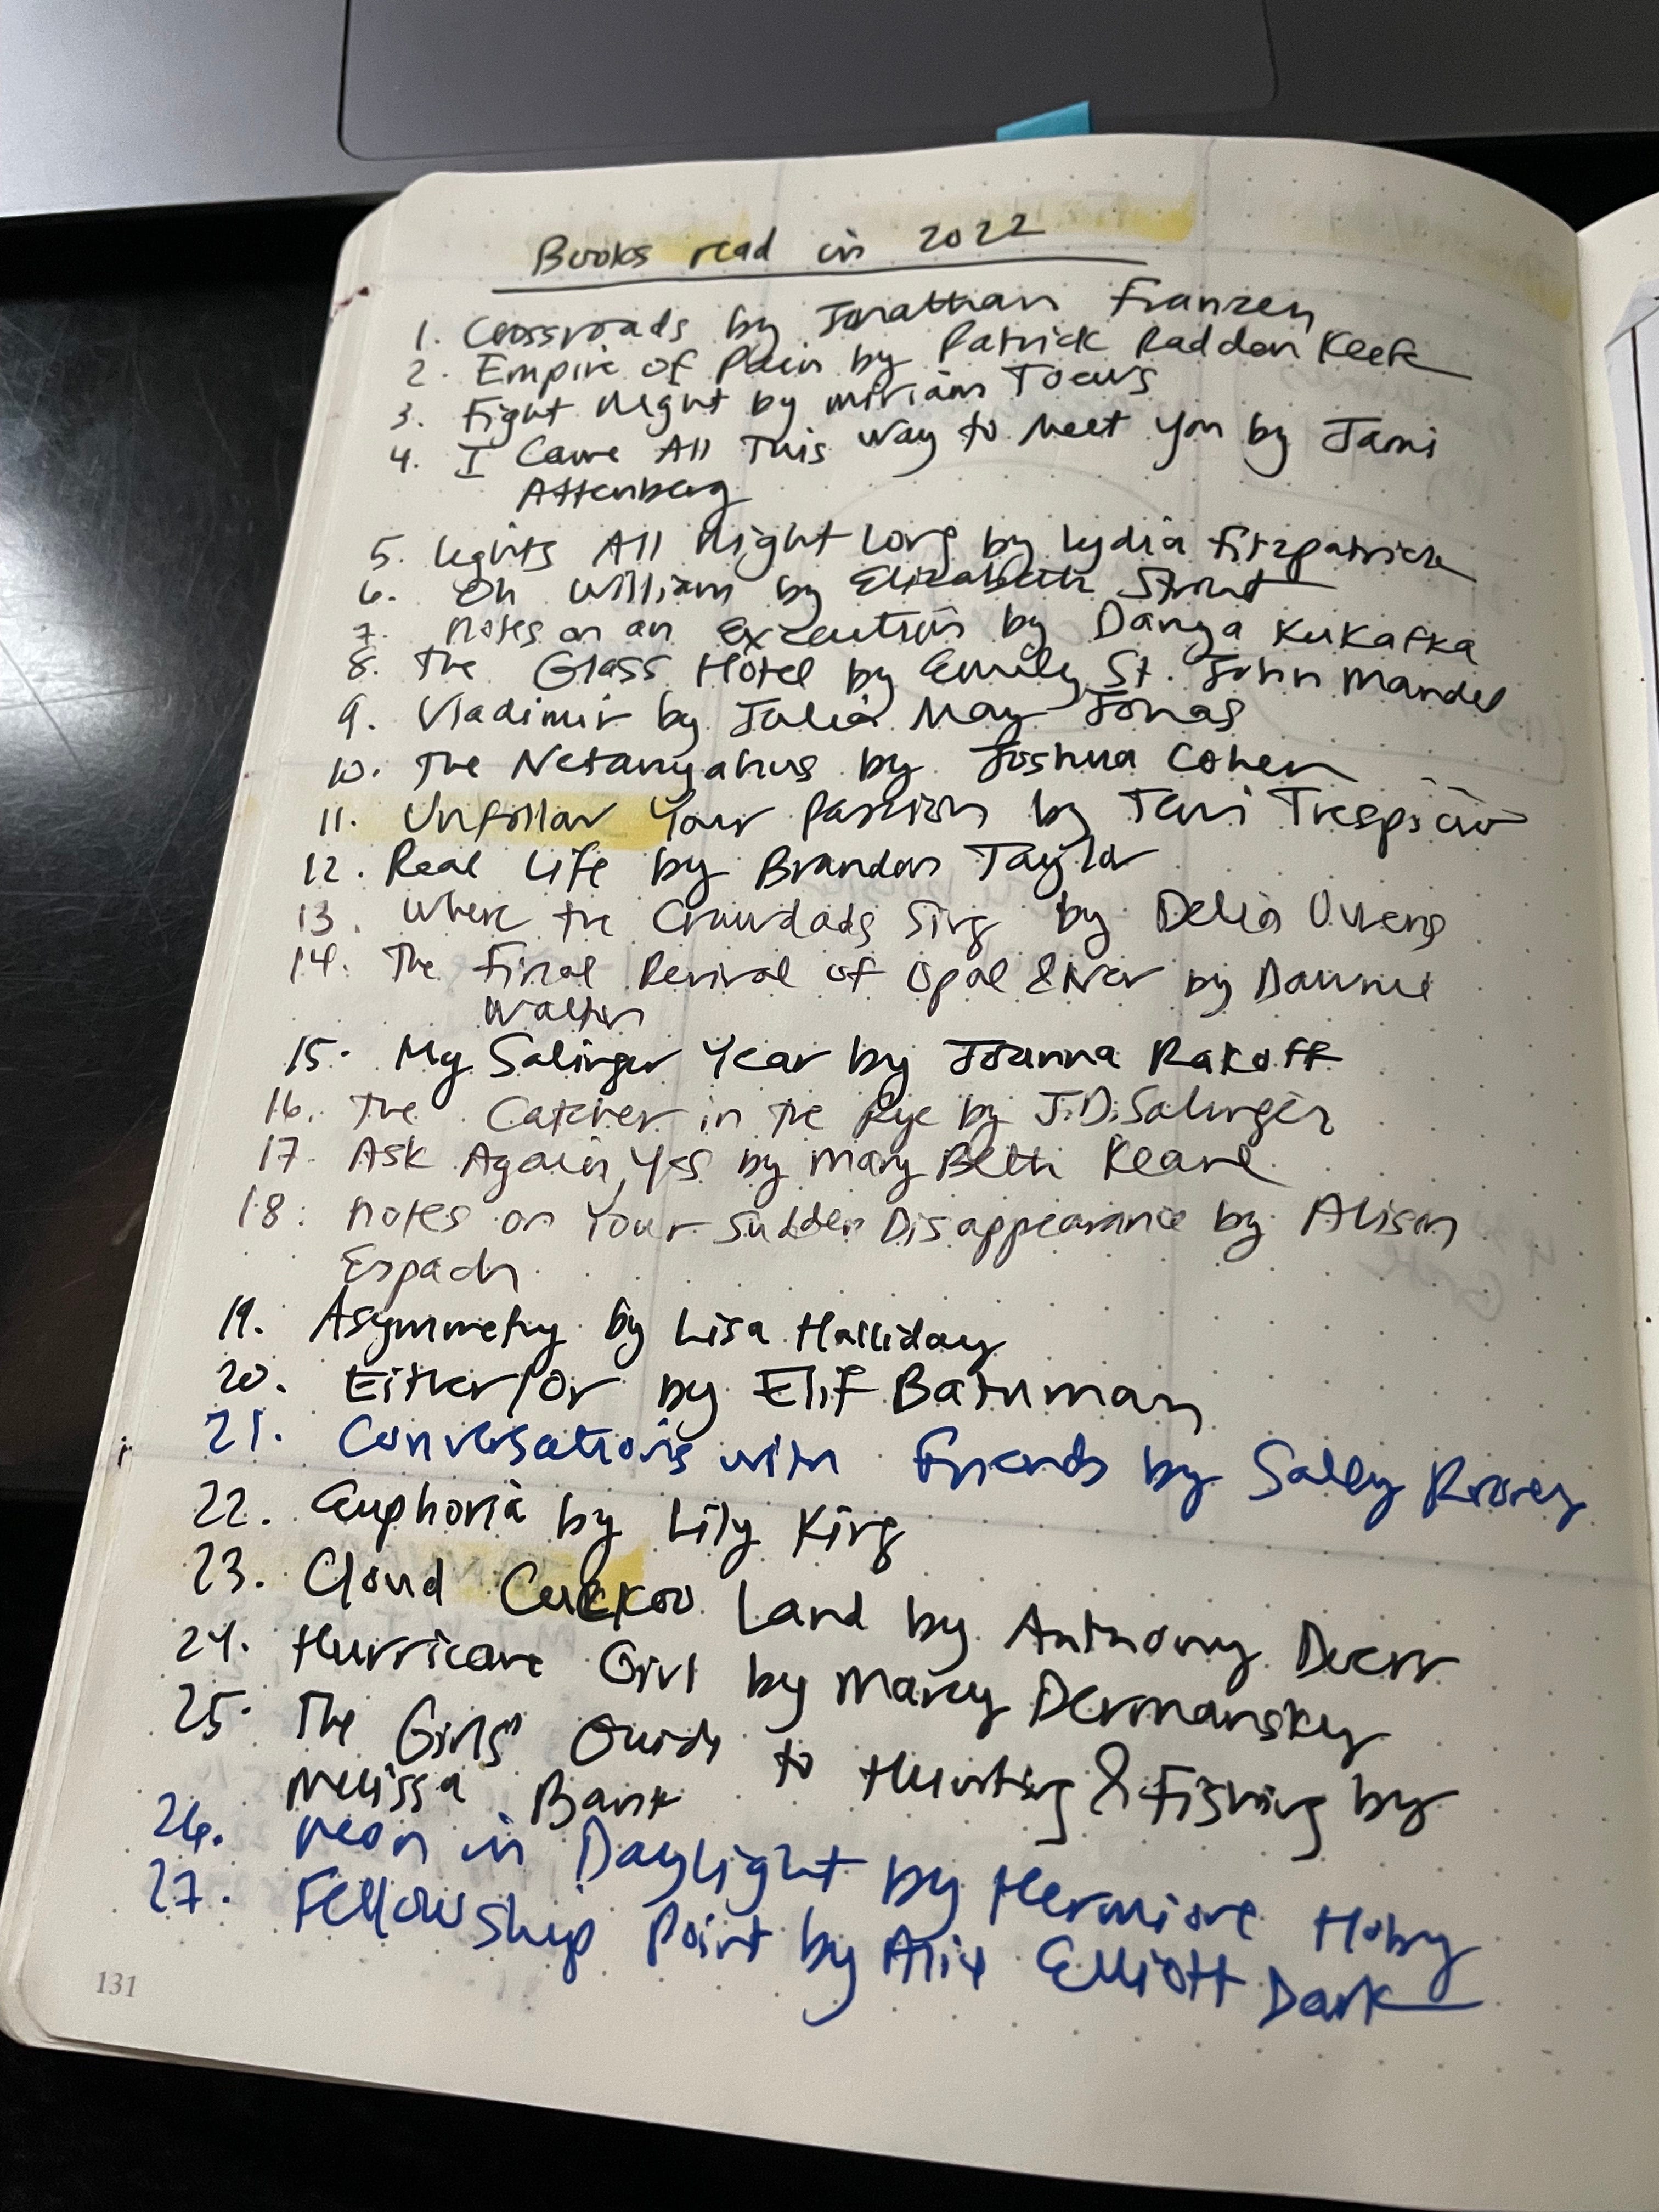 Books read in 2022
1. Crossroads by Jonathan Franzen
2. Empire of Pain by Patrick Radden Keefe
3. Fight Night by Miriam Toews
4. I Came All This Way to Meet You by Jami
Attenberg
5. Lights All Night Long by Lydia Fitzpatrick
6. Oh William by Elizabeth Strout
7. Notes on an Execution by Danya Kukafka
8. The Glass Hotel by Emily St. John Mandel
9. Vladimir by Julia May Jonas
10. The Netanyahus by Joshua Cohen
11. Unfollow Your Passion by Terri Trespicio
12. Real Life by Brandon Taylor
13. Where the Crawdads Sing by Delia Owens
14. The Final Revival of Opal & Nev by Dawnie
Walton
15. My Salinger Year by Joanna Rakoff
16. The Catcher in the Rye by J.D. Salinger
17. Ask Again, Yes by Mary Beth Keane
18. Notes on Your Sudden Disappearance by Alison
Espach
19. Asymmetry by Lisa Halliday
20. Either/Or by Elif Batuman
21. Conversations with Friends by Sally Rooney
22. Euphoria by Lily King
23. Cloud Cuckoo Land by Anthony Doerr
24. Hurricane Girl by Marcy Dermansky
25. The Girls' Guide to Hunting & Fishing by
Melissa Bank
26. Neon in Daylight by Hermione Hoby
27. Fellowship Point by Alix Elliott Dark
131